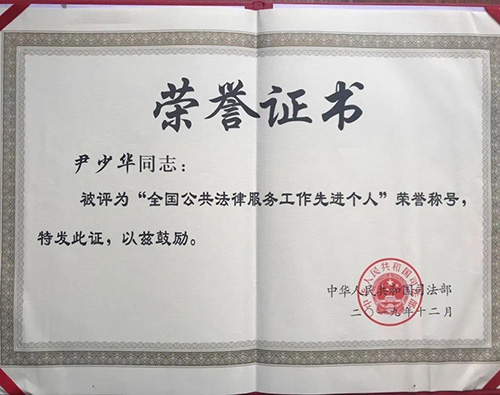 荣誉证书
尹少华同志：
被评为“全国公共法律服务工作先进个人”荣誉称号，
特发此证，以兹鼓励。
中华人民共和国司法部
二〇一九年十二月
中华人民共和国司法部